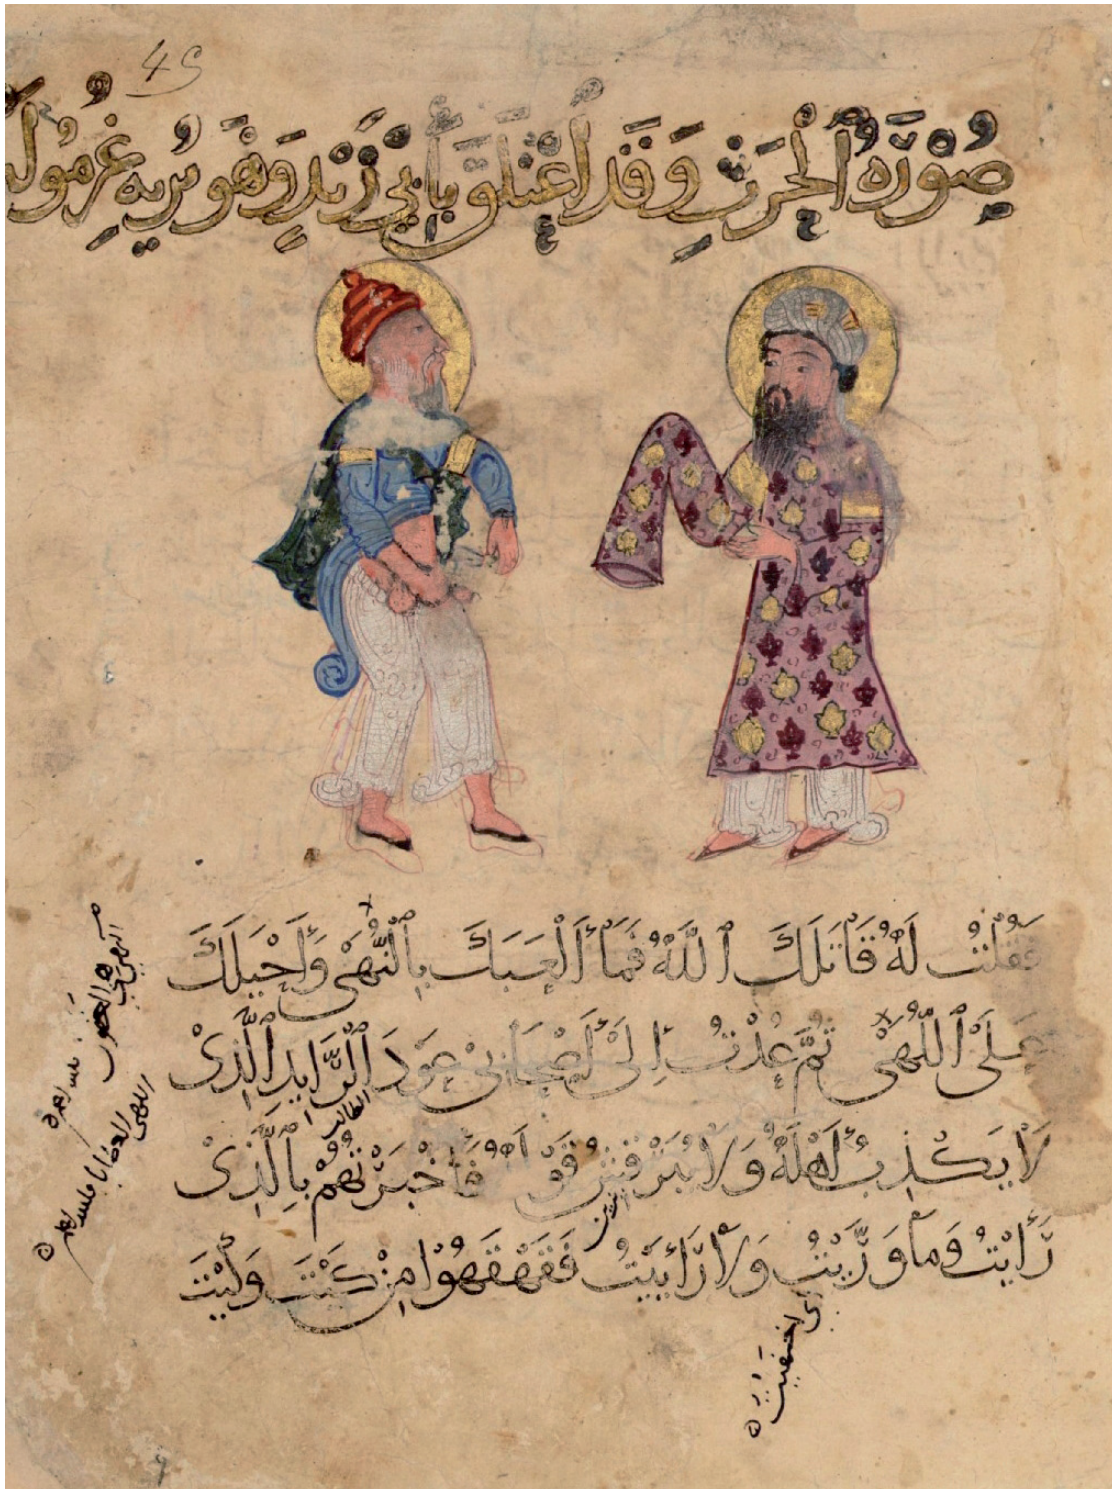 49
صُوْرَةُ الْحَرِثِ وَقَدِ اعْتَلَقَ بِأَبِيْ زَيْدٍ وَهْوَ يُرِيهِ غُرْمُولَهُ
فَقُلْتُ لَهُ قَاتَلَكَ اللَّهُ فَمَا أَلْعَبَكَ بِالنُّهَىْ وَأَحْيَلَكَ
عَلَىْ اللُّهَىْ ثُمَّ عُدْتُ إِلَىْ أَصْحَابِيْ عَوْدَ الرَّايِدِ الَّذِىْ
لَا يَكْذِبُ أَهْلَهُ وَلَا يُبَرْقِشُ قَوْلَهُ فَأَخْبَرْتُهُمْ بِالَّذِىْ
رَأَيْتُ وَمَا وَرَّيْتُ وَلَا رَأَيَيْتُ فَقَهْقَهُوْا مِنْ كَيْتَ وَلَيْتَ
الطالب
اى اخفيت